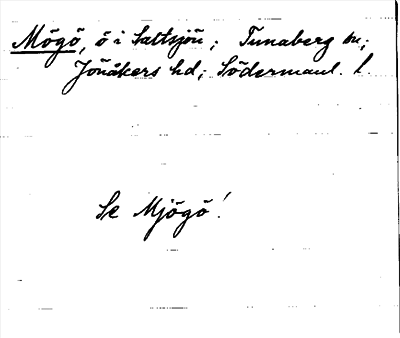 Mögö, ö i Saltsjön; Tunaberg sn;
Jönåkers hd; Södermanl. l.
Se Mjögö!